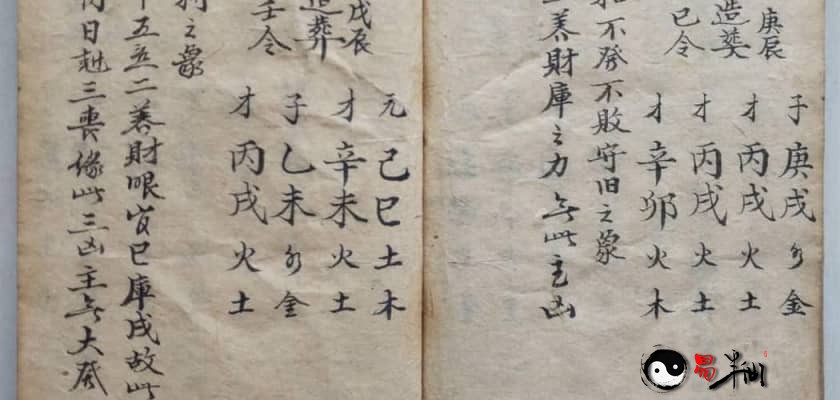 庚辰
造葬
巳令
子庚戌水金
才丙戌火土
才丙戌火土
才辛卯火木
不發不敗守旧之象
养財庫之力無此主凶
戊辰
造葬
壬令
元己巳土木
才辛未火土
子乙未水金
才丙戌火土
之象
五立二养財眼官巳庫戌故此
日尅三喪緣此三凶主無大發
易半仙